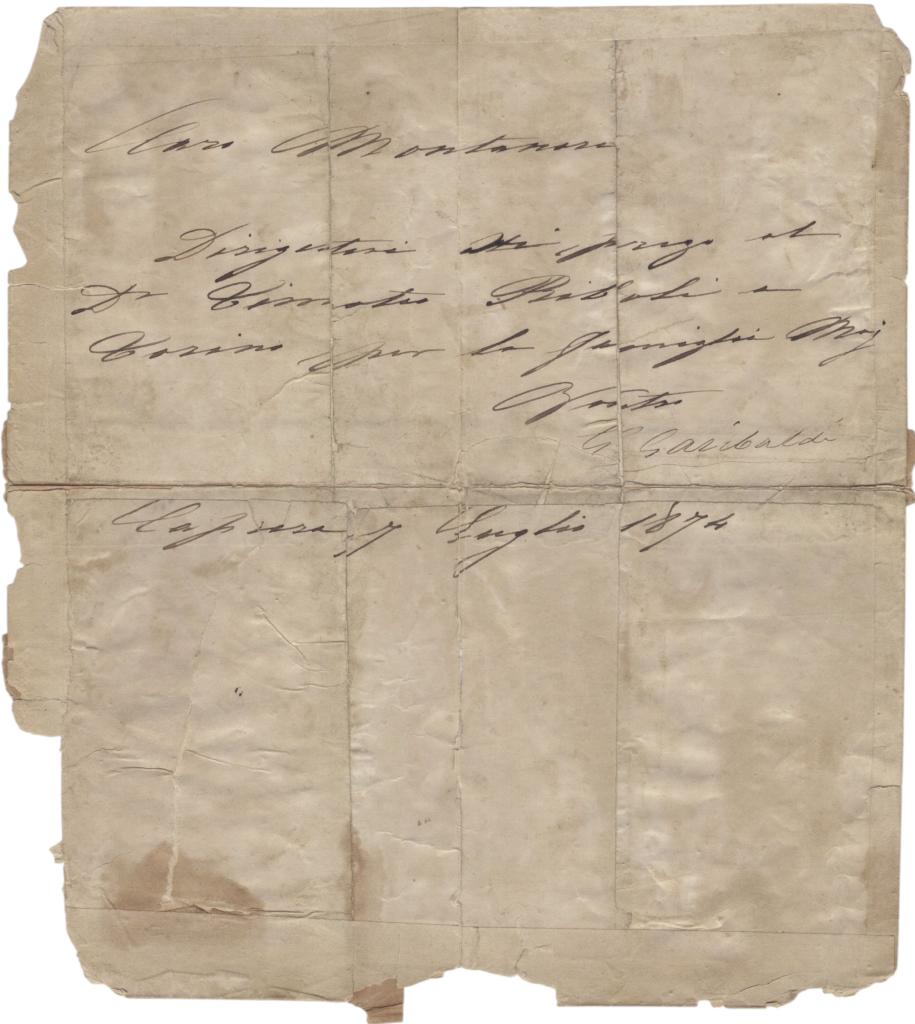 Caro Montanara
Dirigetevi Vi prego al
Dr Timoteo Riboli a
Torino per la famiglia
Vostro
G Garibaldi
Caprera, 7 Luglio 1874